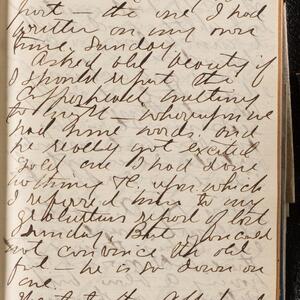 port — the one I had
written on my own
time, Sunday.
Asked old beauty if
I should report the
Copperhead meeting
to night — whereupon we
had some words, and
he really got excited
said one I had done
nothing &c. upon which
I referred him to my
gratuitous report of last
Sunday. But I could
not convince the old
— he is so down on
one.